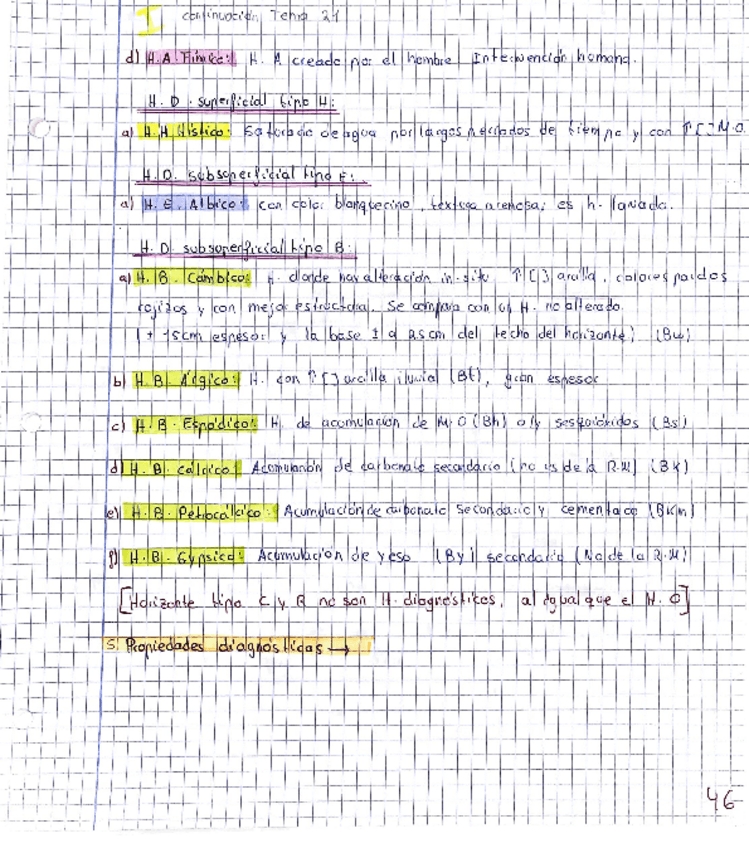 I continuación Tema 21
d) H.A. Fímico: H. A creado por el hombre Intervención humana.
H. D. superficial tipo H:
a) H. H. Hístico: Saturado de agua por largos periodos de tiempo y con ↑[ ] M.O.
H. D. subsuperficial tipo E:
a) H. E. Albico: con color blanquecino, textura arenosa; es h. lavado.
H. D. subsuperficial tipo B:
a) H. B. Cámbico: h. donde hay alteración in-situ ↑[ ] arcilla, colores pardos
rojizos y con mejor estructura. Se compara con un H. no alterado.
( + 15cm espesor y la base a 25cm del techo del horizonte) (Bw)
b) H. B. Árgico: H. con ↑[ ] arcilla iluvial (Bt), gran espesor
c) H. B. Espódico: H. de acumulación de M.O (Bh) o/y sesquióxidos (Bs)
d) H. B. cálcico: Acumulación de carbonato secundario (no es de la R.M) (BK)
e) H. B. Petrocálcico: Acumulación de carbonato secundario y cementado (BKm)
f) H. B. Gypsico: Acumulación de yeso (By) secundario (No de la R.M)
[Horizonte tipo C y R no son H. diagnósticos, al igual que el H. O]
5. Propiedades diagnósticas →
46